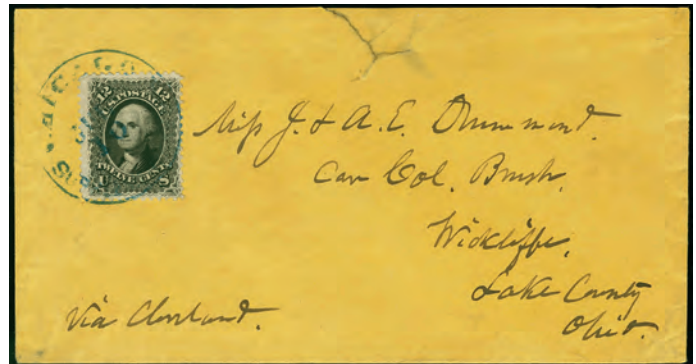 CHICAGO
12 12
U.S. POSTAGE
TWELVE CENTS
U S
Miss J. & A. E. Drummond.
Care Col. Brush,
Wickliffe,
Lake County
Ohio.
Via Cleveland.